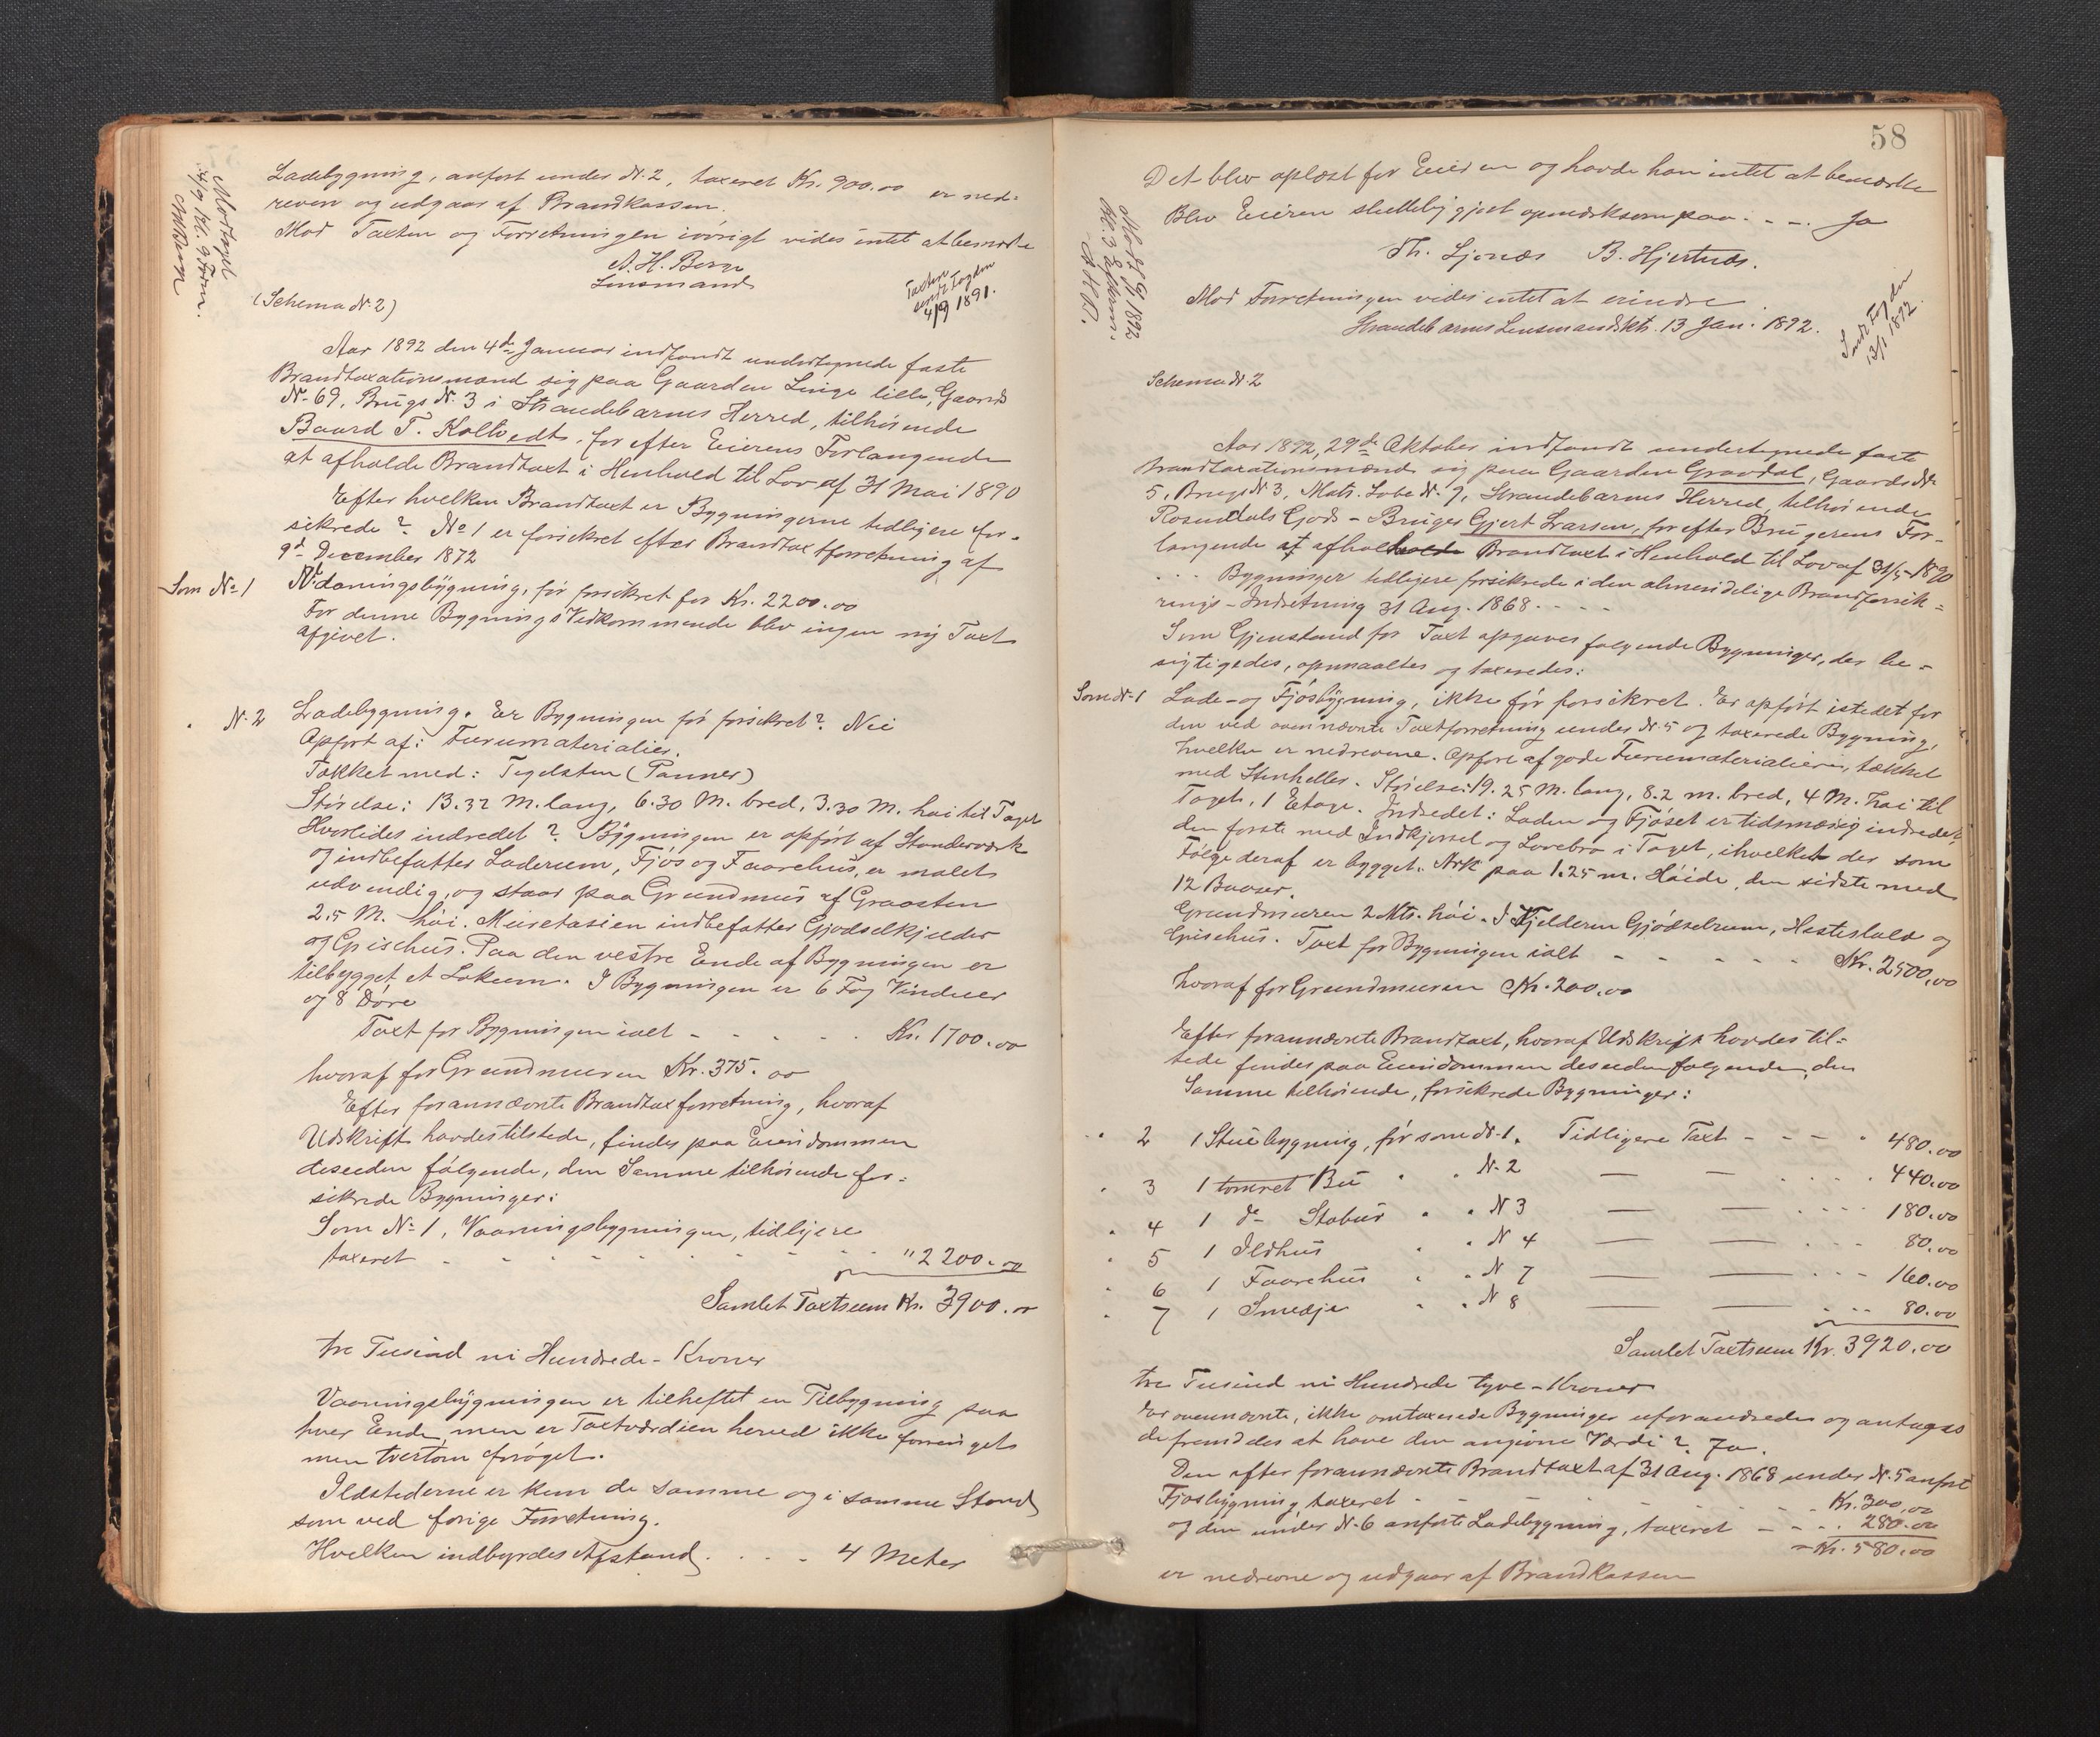 Modtaget
4/9 Kl. 9 Form.
Ladebygning, anført under N. 2, taxeret Kr. 900.00 er ned-
reven og udgaar af Brandkassen.
Mod Taxten og Forretningen iøvrigt vides intet at bemærke
A. H. Berge
Lensmand
Taxten
sendt Fogden
4/9 1891.
(Schema N. 2)
Aar 1892 den 4de Januar indfandt undertegnede faste
Brandtaxationsmænd sig paa Gaarden Linge lille, Gaards
N. 69, Brugs N. 3 i Strandebarms Herred, tilhørende
Baard T. Koltvedt, for efter Eierens Forlangende
at afholde Brandtaxt i Henhold til Lov af 31 Mai 1890
Efter hvilken Brandtaxt er Bygningerne tidligere for-
sikrede? No 1 er forsikret efter Brandtaxtforretning af
9d December 1872
Som No 1 Vaaningsbygning, før forsikret for Kr. 2200.00
For denne Bygnings Vedkommende blev ingen ny Taxt
afgivet.
" N. 2 Ladebygning. Er Bygningen før forsikret? Nei
Opført af: Furumaterialier.
Tækket med: Tegelsten (Panner)
Størelse: 13.32 M. lang, 6.30 M. bred, 3.30 M. høi til Taget
Hvorledes indredet? Bygningen er opført af Standerværk
og indbefatter Laderum, Fjøs og Faarehus, er malet
udvendig, og staar paa Grundmur af Graasten
2.5 M. høi. Muretasien indbefatter Gjødselkjelder
og Grisehus. Paa den vestre Ende af Bygningen er
tilbygget et Lokum. I Bygningen er 6 Fag Vinduer
og 8 Døre
Taxt for Bygningen ialt - - - - - Kr. 1700.00
hvoraf for Grundmuren Kr. 375.00
Efter forannævnte Brandtaxforretning, hvoraf
Udskrift havdes tilstede, findes paa Eiendommen
desuden følgende, den Samme tilhørende for-
sikrede Bygninger:
Som No 1, Vaaningsbygningen, tidligere
taxeret - - - - - - - - " 2200.00
Samlet Taxtsum Kr. 3900.00
tre Tusind ni Hundrede - Kroner
Vaaningsbygningen er tilheftet en Tilbygning paa
hver Ende, men er Taxtværdien herved ikke forringet
men tvertom forøget.
Ildstederne er kun de samme og i samme Stand
som ved forige Forretning.
Hvilken indbyrdes Afstand. - - - 4 Meter
58
Modt 9/1 1892
Kl. 3 Efterm.
Det blev oplæst for Eieren og havde han intet at bemærke
Blev Eieren skellelig gjort opmærksom paa - - - Ja
Th. Ljonæs B. Hjertnæs.
Mod Forretningen vides intet at erindre
Strandebarms Lensmandskt. 13 Jan. 1892.
Sendt Fogden
13/1 1892.
Schema N. 2
Aar 1892, 29de Oktober indfandt undertegnede faste
Brandtaxationsmænd sig paa Gaarden Gravdal, Gaards No
5, Brugs N. 3, Matr. Løbe N. 9, Strandebarms Herred, tilhørende
Rosendals Gods - Bruger Gjert Larsen, for efter Brugerens For-
langende at afholde Brandtaxt i Henhold til Lov af 31/5-1890
... Bygninger tidligere forsikrede i den almindelige Brandforsik-
rings-Indretning 31 Aug. 1868. - - -
Som Gjenstand for Taxt opgaves følgende Bygninger, der be-
sigtigedes, opmaaltes og taxeredes:
Som N. 1 Lade- og Fjøsbygning, ikke før forsikret. Er opført istedet for
den ved ovennævnte Taxtforretning under N. 5 og taxerede Bygning,
hvilke er nedrevne. Opført af gode Furumaterialier, tækket
med Stenheller. Størelse: 19.25 M. lang, 8.2 m. bred, 4 M. høi til
Taget, 1 Etage. Indredet: Laden og Fjøset er tidsmæsig indredet,
den første med Indkjørsel og Lavebro i Taget, i hvilket der som
Følge deraf er bygget Ark paa 1.25 m. Høide, den sidste med
12 Baaser.
Grundmuren 2 Mtr. høi. I Kjelderen Gjødselrum, Hestestald og
Grisehus. Taxt for Bygningen ialt - - - - - Kr. 2500,00
hvoraf for Grundmuren Kr. 200.00
Efter forannævnte Brandtaxt, hvoraf Udskrift havdes til-
stede findes paa Eiendommen desuden følgende, den
Samme tilhørende, forsikrede Bygninger:
" 2 1 Stuebygning, før som N. 1. Tidligere Taxt - - - - 480.00
" 3 1 tømret Bu " " N. 2 — — - - - 440.00
" 4 1 do Stabur " " N 3 — — - - - 180.00
" 5 1 Ildhus " " N 4 — — - - - 80.00
" 6 1 Faarehus " " N 7 — — - - - 160.00
" 7 1 Smedje " " N 8 — — - - - 80.00
Samlet Taxtsum Kr. 3920.00
tre Tusind ni Hundrede tyve - Kroner
Er ovennævnte, ikke omtaxerede Bygninger uforandrede og antages
de fremdeles at have den angivne Værdi? Ja.
Den efter forannævnte Brandtaxt af 31 Aug. 1868 under N. 5 anført
Fjøsbygning taxeret - - - - - - Kr. 300,00
og den under N. 6 anførte Ladebygning, taxeret - - - - 280.00
- Kr. 580.00
er nedrevne og udgaar af Brandkassen